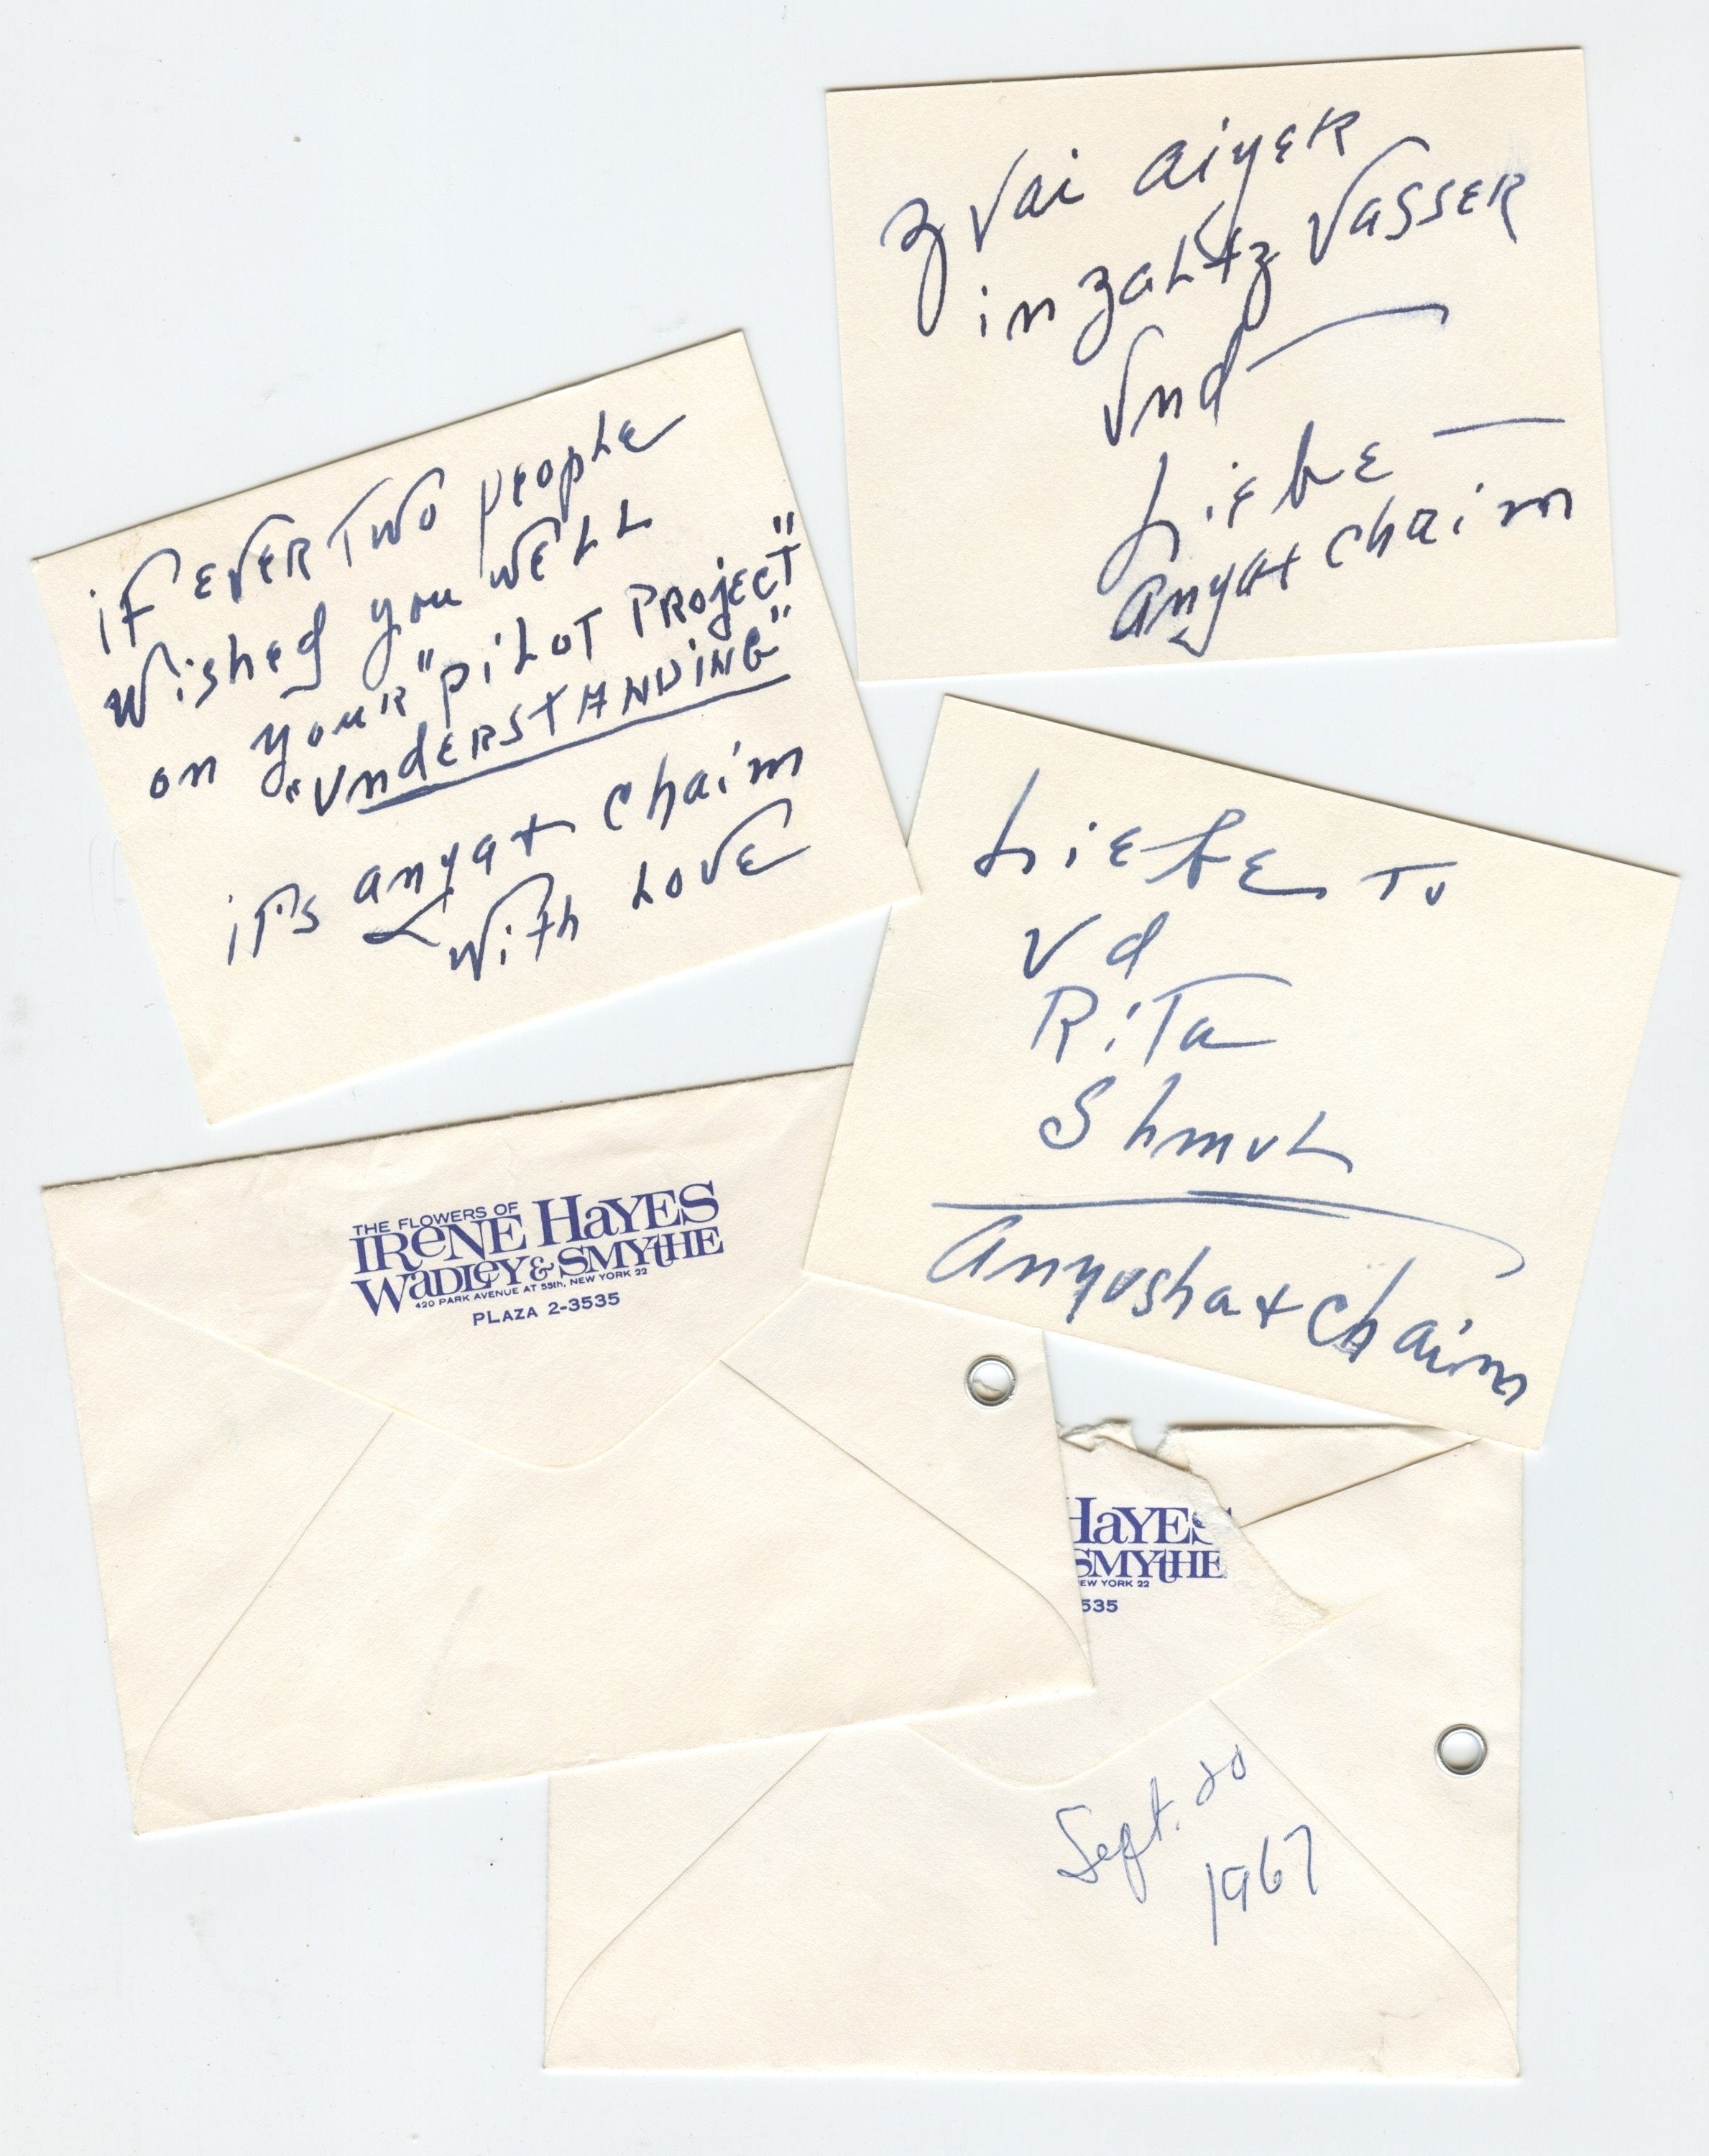 zvai aiyer
in zaltz vasser
Vnd
Liebe
anya + chaim
if ever two people
wished you well
on your "pilot project"
"understanding"
it's anya + chaim
with love
Liebe to
Vd
Rita
Shmul
anyusha + chaim
THE FLOWERS OF
IReNE HaYES
WaDLeY & SMYtHE
420 PARK AVENUE AT 55th, NEW YORK 22
PLAZA 2-3535
HaYES
SMYtHE
EW YORK 22
535
Sept. 20
1967